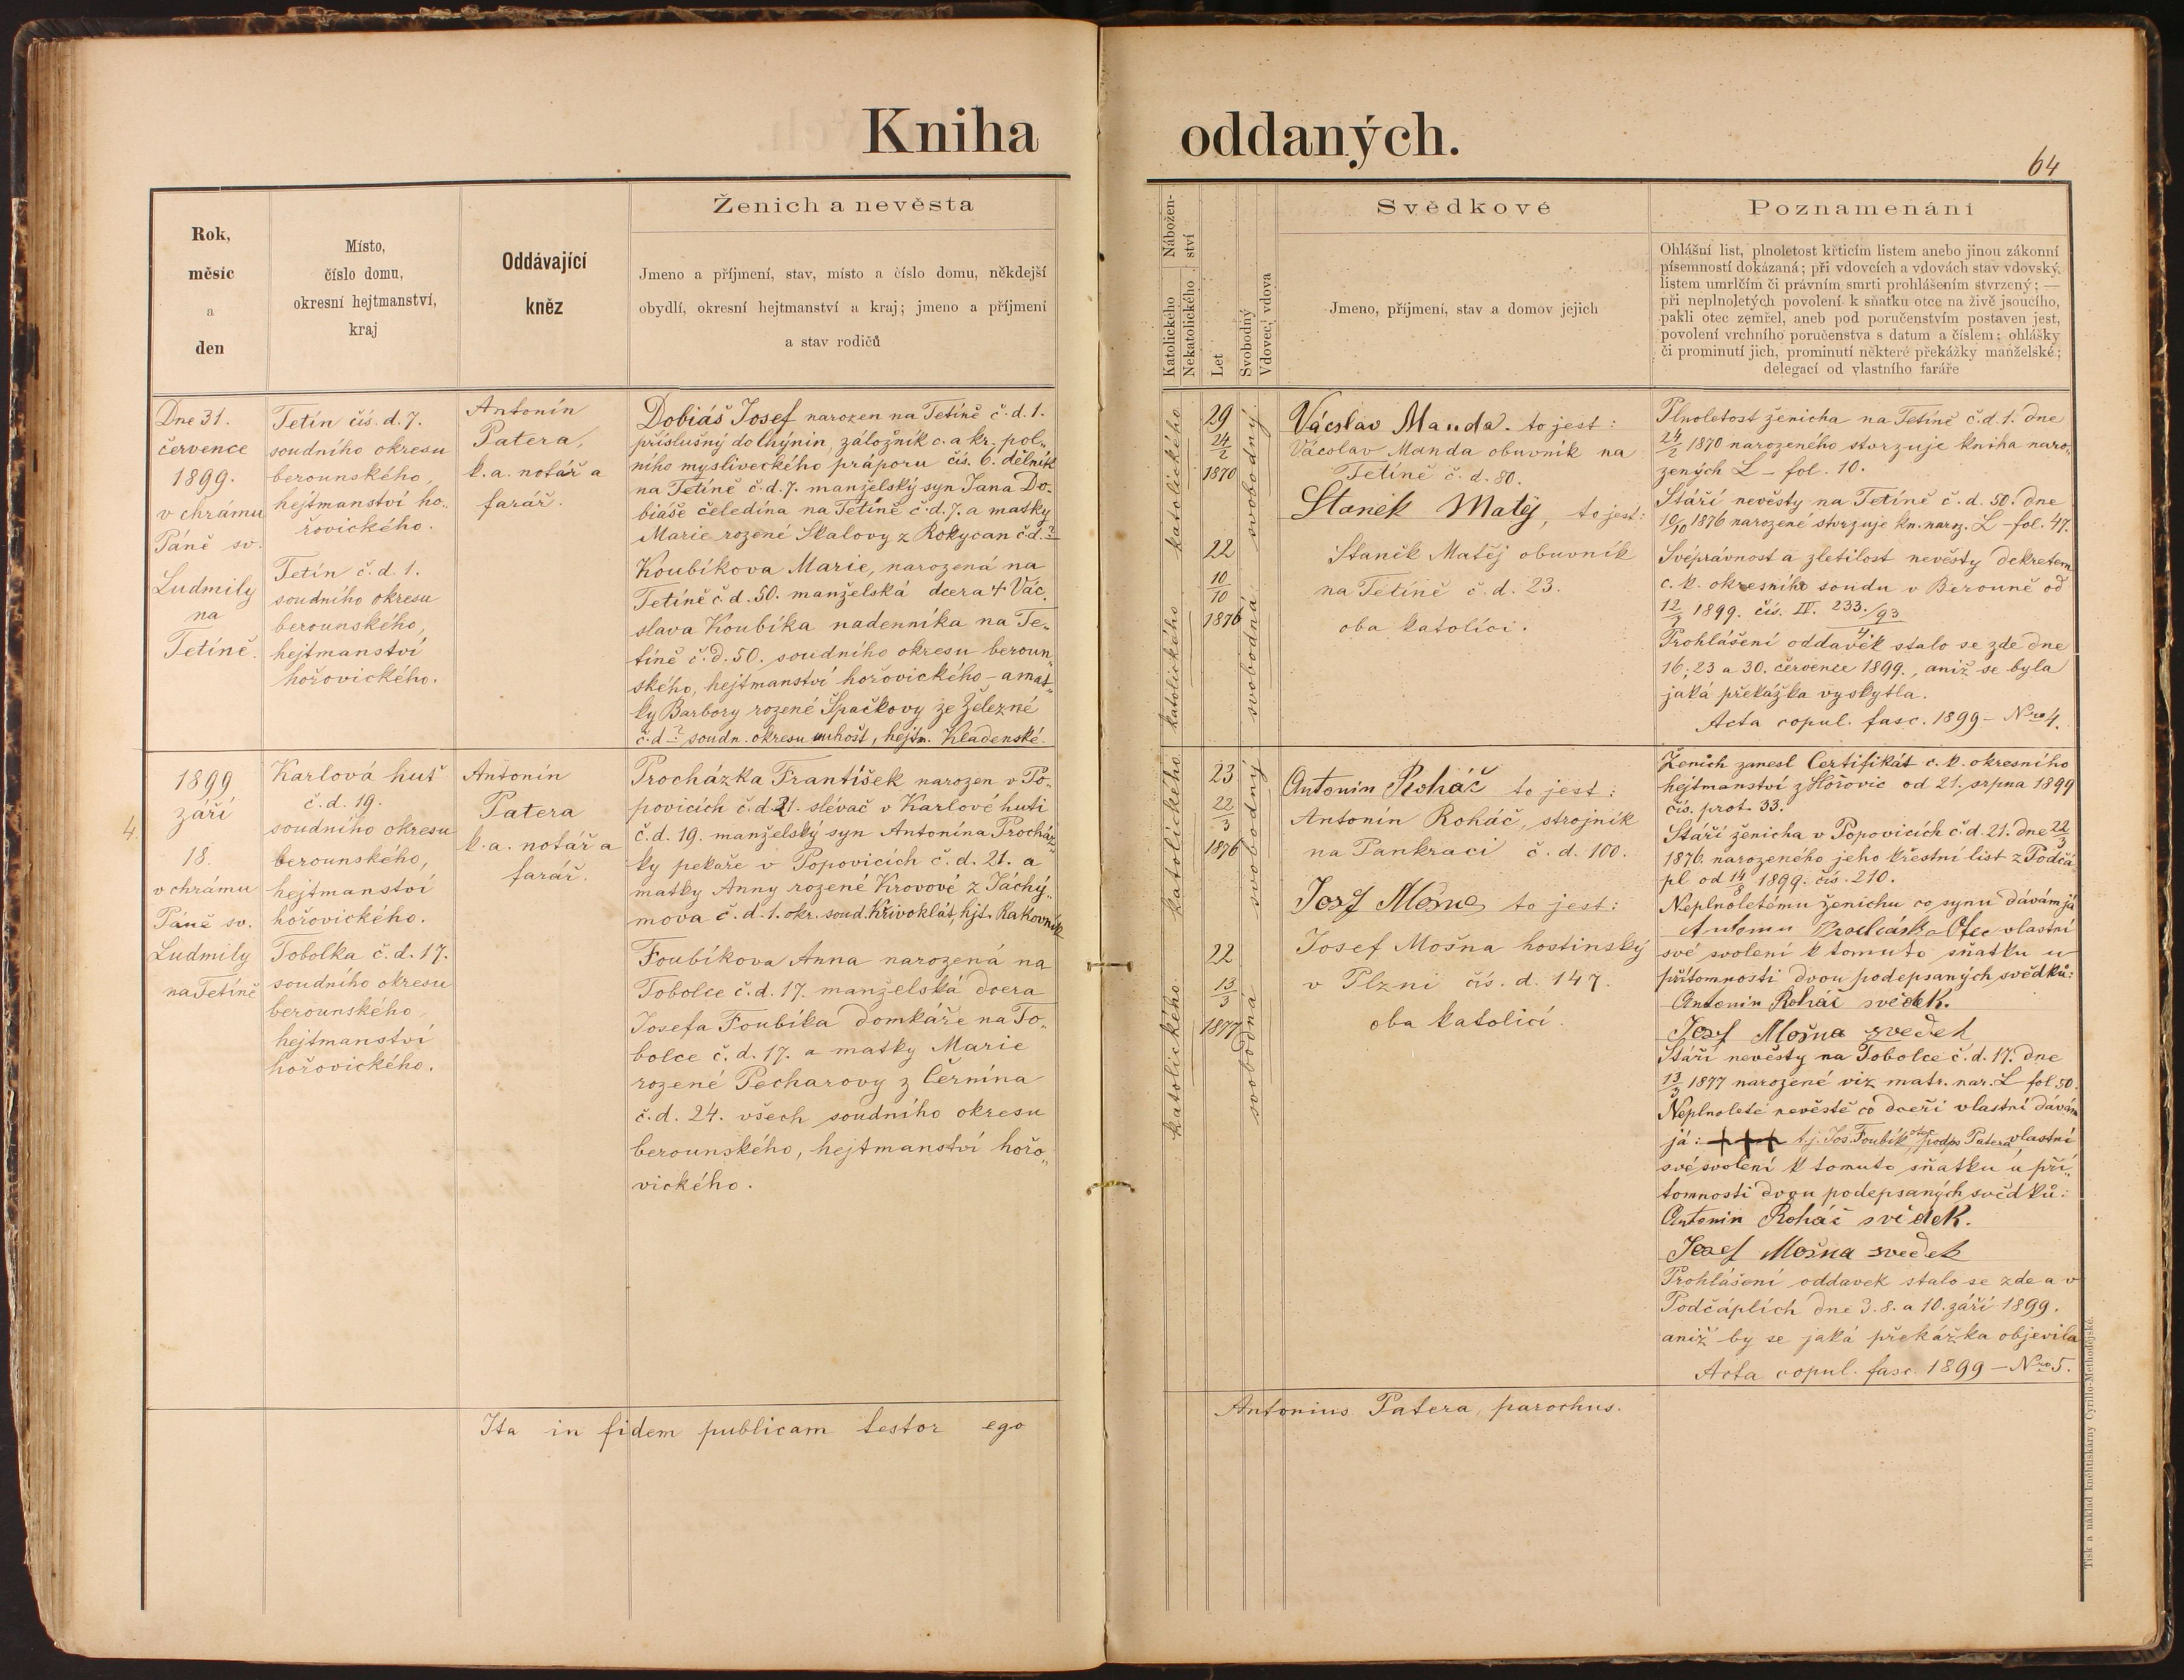 Kniha oddaných.
64
Rok,
měsíc
a
den
Místo,
číslo domu,
okresní hejtmanství,
kraj
Oddávající
kněz
Ženich a nevěsta
Jmeno a příjmení, stav, místo a číslo domu, někdejší
obydlí, okresní hejtmanství a kraj; jmeno a příjmení
a stav rodičů
Nábožen-
ství
Katolického
Nekatolického
Let
Svobodný
Vdovec, vdova
Svědkové
Jmeno, příjmení, stav a domov jejich
Poznamenání
Ohlášní list, plnoletost křticím listem anebo jinou zákonní
písemností dokázaná; při vdovcích a vdovách stav vdovský
listem umrlčím či právním smrti prohlášením stvrzený; —
při neplnoletých povolení k sňatku otce na živě jsoucího,
pakli otec zemřel, aneb pod poručenstvím postaven jest,
povolení vrchního poručenstva s datum a číslem; ohlášky
či prominutí jich, prominutí některé překážky manželské;
delegací od vlastního faráře
Dne 31.
července
1899.
v chrámu
Páně sv.
Ludmily
na
Tetíně.
Tetín čís. d. 7.
soudního okresu
berounského,
hejtmanství ho„
řovického.
Tetín č. d. 1.
soudního okresu
berounského,
hejtmanství
hořovického.
Antonín
Patera,
k. a. notář a
farář.
Dobiáš Josef narozen na Tetíně č. d. 1.
příslušný do Chýnin, záložník c. a kr. pol„
ního mysliveckého práporu čís. 6. dělník
na Tetíně č. d. 7. manželský syn Jana Do„
biáše čeledína na Tetíně č. d. 7. a matky
Marie rozené Skalovy z Rokycan č d. ?
Koubíkova Marie, narozená na
Tetíně č. d. 50. manželská dcera † Vác„
slava Koubíka nadenníka na Te„
tíně č. d. 50. soudního okresu beroun„
ského, hejtmanství hořovického – a mat„
ky Barbory rozené Špačkovy ze Železné
č. d ? soudn. okresu unhošt, hejtm. Kladenské.
katolického
katolického
29
24/2
1870
22
10/10
1876
svobodný
svobodná
Vácslav Manda. to jest:
Vácslav Manda obuvník na
Tetíně č. d. 80.
Staněk Matěj, to jest:
Staněk Matěj obuvník
na Tetíně č. d. 23.
oba katolíci.
Plnoletost ženicha na Tetíně č. d. 1. dne
24/2 1870 narozeného stvrzuje kniha naro„
zených L – fol. 10.
Stáří nevěsty na Tetíně č. d. 50. dne
10/10 1876 narozené stvrzuje kn. naroz. L – fol. 47.
Svéprávnost a zletilost nevěsty dekretem
c. k. okresního soudu v Berouně od
1899. čís. IV. 233./93
Prohlášení oddavek stalo se zde dne
16; 23 a 30. července 1899., aniž se byla
jaká překážka vyskytla.
Acta copul. fasc. 1899 – Nro 4.
4.
1899
září
18.
v chrámu
Páně sv.
Ludmily
na Tetíně
Karlová huť
č. d. 19.
soudního okresu
berounského,
hejtmanství
hořovického.
Tobolka č. d. 17.
soudního okresu
berounského
hejtmanství
hořovického.
Antonín
Patera
k. a. notář a
farář.
Procházka František narozen v Po„
povicích č. d 21. slévač v Karlové huti
č. d. 19. manželský syn Antonína Procház„
ky pekaře v Popovicích č. d. 21. a
matky Anny rozené Krovové z Jáchý„
mova č. d. 1. okr. soud. Křivoklát, hjt. Rakovník
Foubíkova Anna narozená na
Tobolce č. d. 17. manželská dcera
Josefa Foubíka domkáře na To„
bolce č. d. 17. a matky Marie
rozené Pecharovy z Černína
č. d. 24. všech soudního okresu
berounského, hejtmanství hořo„
vického.
katolického
katolického
23
22/3
1876
22
13/3
1877
svobodný
svobodná
Antonin Roháč to jest:
Antonín Roháč, strojník
na Pankraci č. d. 100.
Josef Mošna to jest:
Josef Mošna hostinský
v Plzni čís. d. 147.
oba katolicí.
Ženich zanesl Certifikát c. k. okresního
hejtmanství z Hořovic od 21. srpna 1899
čís. prot. 33.
Stáří ženicha v Popovicích č. d. 21. dne 22/3
1876. narozeného jeho křestní list z Podčá„
pl od 14/8 1899. čís. 210.
Neplnoletému ženichu co synu dávám já
Otec vlastní
své svolení k tomuto sňatku u
přítomnosti dvou podepsaných svědků:
Antonin Roháč svědek.
Josef Mošna svedek
Stáří nevěsty na Tobolce č. d. 17. dne
13/3 1877 narozené viz matr. nar. L fol 50.
Neplnoleté nevěstě co dceři vlastní dávám
já: +++ t. j. Jos. Foubík otec podps Patera vlastní
své svolení k tomuto sňatku u pří„
tomnosti dvou podepsaných svědků:
Antonin Roháč svědek.
Josef Mošna svedek
Prohlášení oddavek stalo se zde a v
Podčáplích dne 3. 8. a 10. září 1899.
aniž by se jaká překážka objevila
Acta copul. fasc. 1899 – Nro 5.
Ita in fidem publicam testor ego
Antonius Patera, parochus.
Tisk a náklad knihtiskárny Cyrillo-Methodějské.